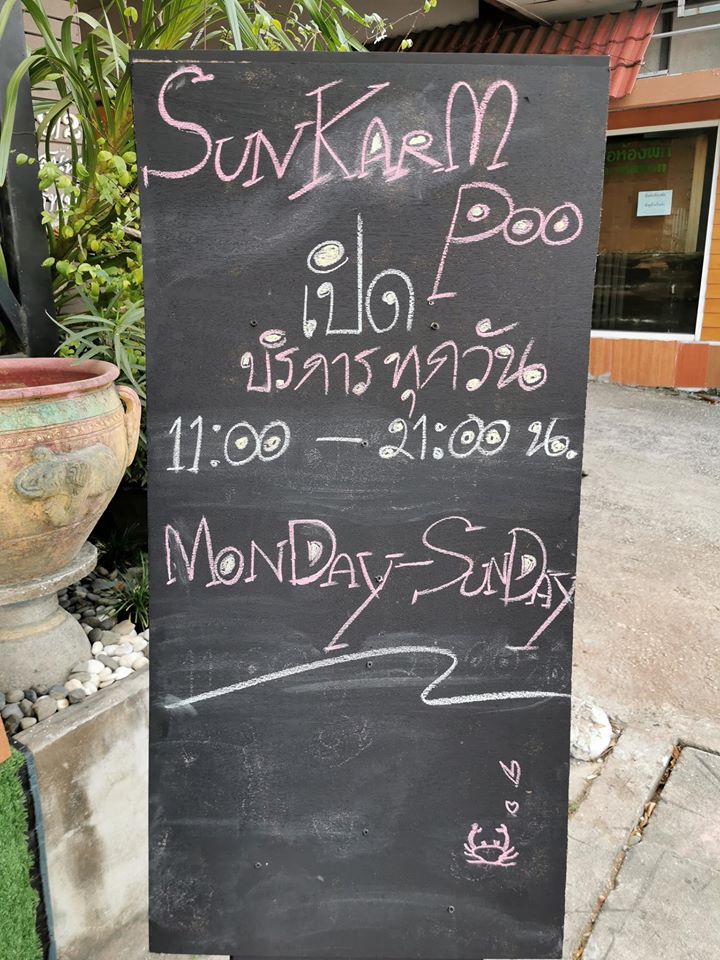 SunKarm
Poo
เปิด
บริการทุกวัน
11:00 – 21:00 น.
MonDay-SunDay